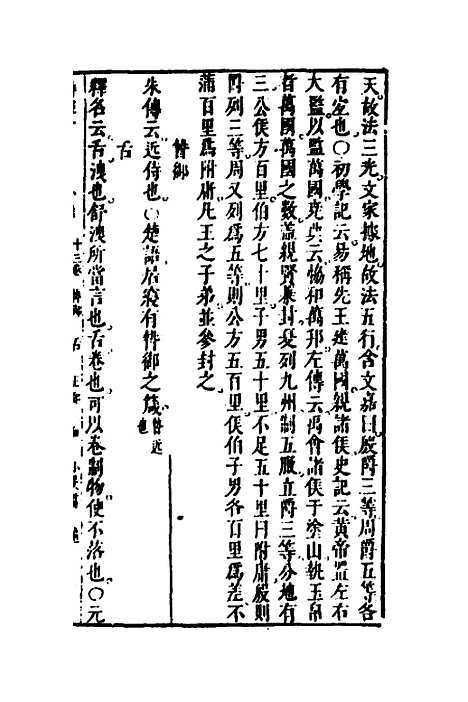 天故法三光文家據地故法五行含文嘉曰殷爵三等周爵五等各
有宜也〇初學記云易稱先王建萬國親諸侯史記云黃帝置左右
大監以監萬國堯典云協和萬邦左傳云禹會諸侯于塗山執玉帛
者萬國萬國之數蓋親賢兼封夏列九州制五服立爵三等分地有
三公侯方百里伯方七十里子男五十里不足五十里曰附庸殷則
爵列三等周又列爲五等則公方五百里侯伯子男各百里爲差不
滿百里爲附庸凡王之子弟並參封之
暬御
朱傳云近侍也〇楚語居寢有暬御之箴暬近也
舌
釋名云舌洩也舒洩所當言也舌卷也可以卷制物使不落也〇元